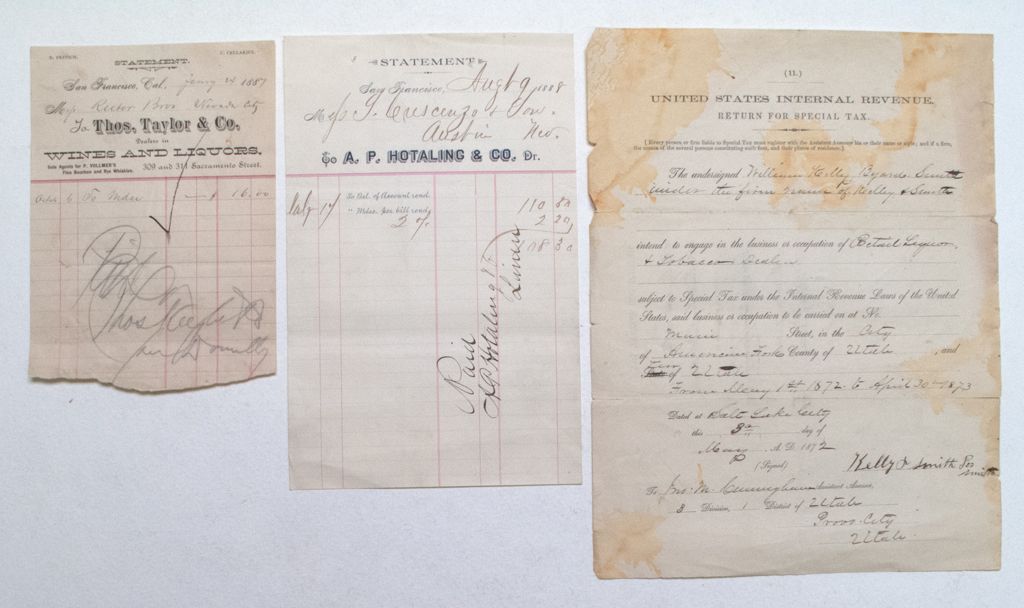 STATEMENT.
San Francisco, Cal. 1887
Nevada City
To Thos. Taylor & Co.
Dealers in
WINES AND LIQUORS.
Sole Agents for P. VOLLMER'S
Fine Bourbon and Rye Whiskies.
309 and 311 Sacramento Street.
6 To Mdse $ 16.00
Thos
STATEMENT
San Francisco, Aug 9 1888
Crescenzo & Son
Austin Nev.
To A. P. HOTALING & CO. Dr.
July 17 To Bal. of Account rend.
" Mdse. per bill rend.
2 %
110 50
2 20
108 30
Paid
A P Hotaling & Co
(11.)
UNITED STATES INTERNAL REVENUE.
RETURN FOR SPECIAL TAX.
[Every person or firm liable to Special Tax must register with the Assistant Assessor his or their name or style; and if a firm, the names of the several persons constituting such firm, and their places of residence.]
The undersigned William Kelley Byard Smith
under the firm name of Kelley & Smith
intend to engage in the business or occupation of Retail Liquor
& Tobacco Dealer
subject to Special Tax under the Internal Revenue Laws of the United
States, said business or occupation to be carried on at No.
Main Street, in the City
of American Fork County of Utah, and
of Utah
From May 1st 1872 to April 30th 1873
Dated at Salt Lake City
this 3d day of
May A. D. 1872
(Signed) Kelly & Smith
To Jno. M. Cunningham Assistant Assessor,
3 Division, 1 District of Utah
Provo City
Utah